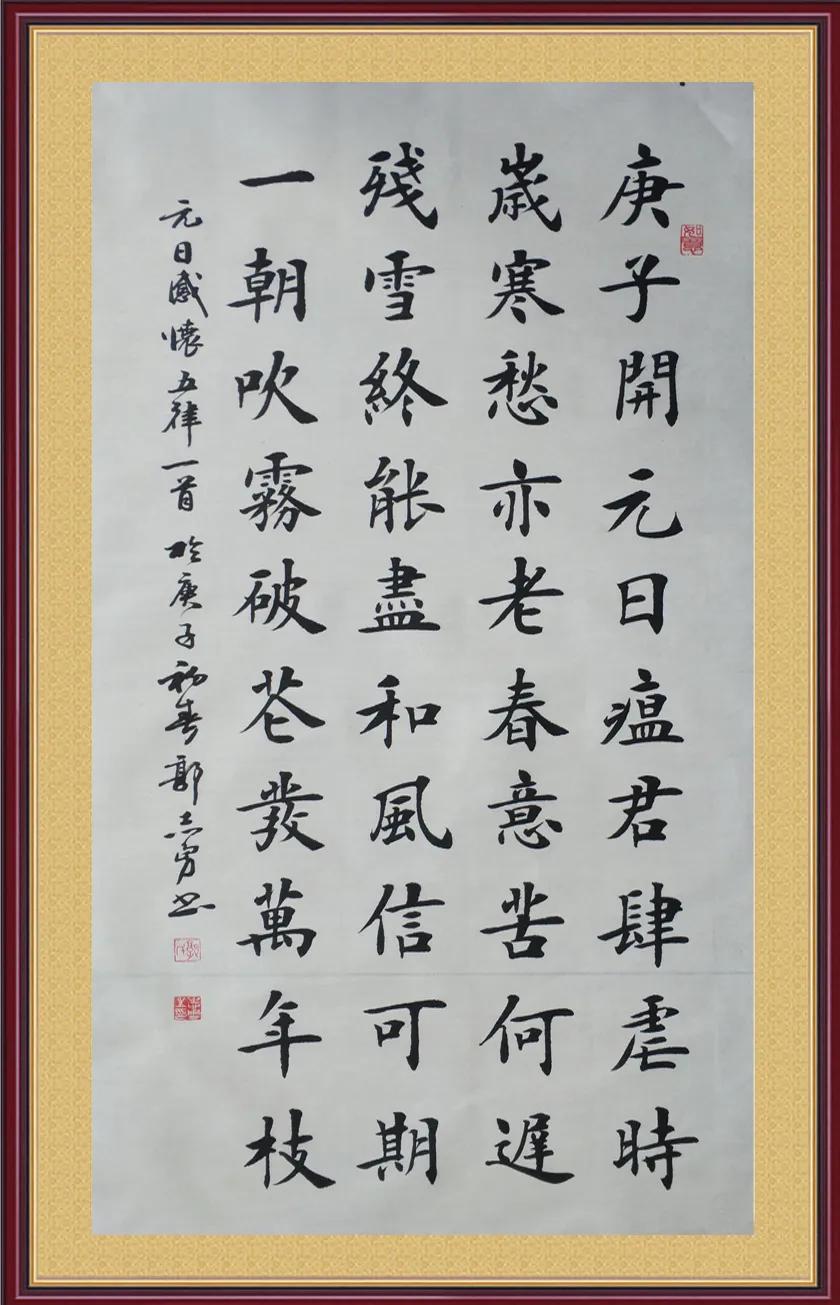 庚子開元日瘟君肆虐時
歲寒愁亦老春意苦何遲
殘雪終能盡和風信可期
一朝吹霧破花發萬年枝
元日感懷五律一首於庚子初春郭志勇书